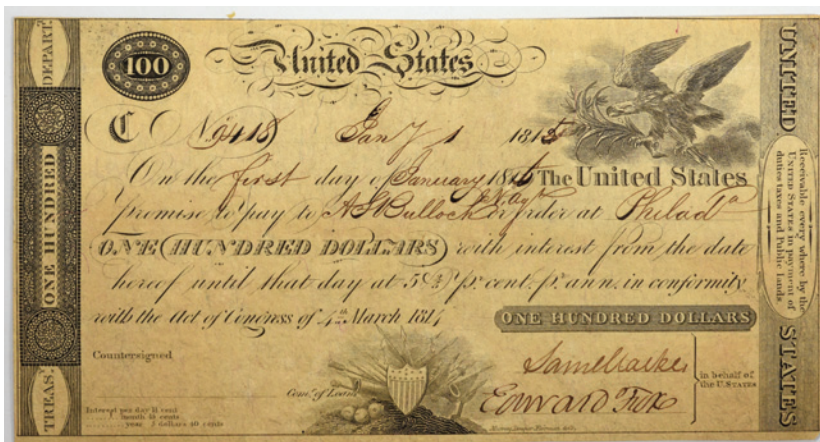 DEPART.
ONE HUNDRED
TREAS.
100
United States
C No. 9418 Jan'y 1 1815
On the first day of January 1816 The United States
promise to pay to A S Bulloch Navy Agt or order at Philad'a
ONE HUNDRED DOLLARS with interest from the date
hereof until that day at 5⅖ pr. cent. pr. ann. in conformity
with the Act of Congress of 4th March 1814
ONE HUNDRED DOLLARS
Countersigned
Com.r of Loans
Interest per day 1½ cent
month 45 cents
year 5 dollars 40 cents
Saml Clarke
Edward Fox
in behalf of
the U. STATES
Murray, Draper, Fairman & Co.
UNITED STATES
Receivable every where by the
UNITED STATES in payment of
duties taxes and Public Lands